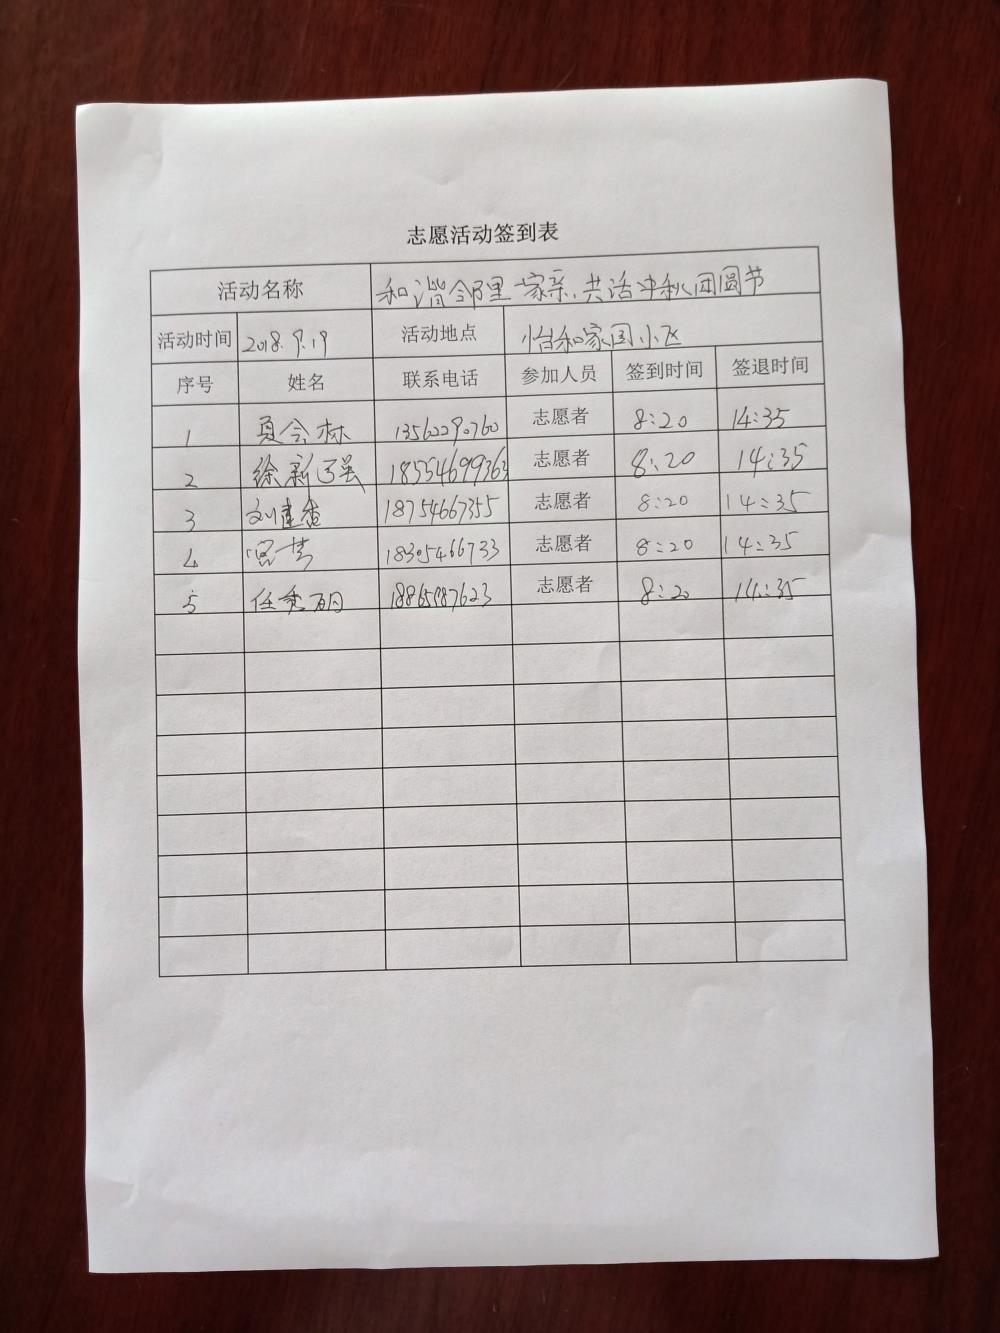 志愿活动签到表
活动名称 和谐邻里一家亲,共话中秋团圆节
活动时间 2018.9.19 活动地点 怡和家园小区
序号 姓名 联系电话 参加人员 签到时间 签退时间
1 夏会林 13562290760 志愿者 8:20 14:35
2 徐新强 18554699363 志愿者 8:20 14:35
3 刘建香 18754667355 志愿者 8:20 14:35
4 18305466733 志愿者 8:20 14:35
5 任秀 志愿者 8:20 14:35